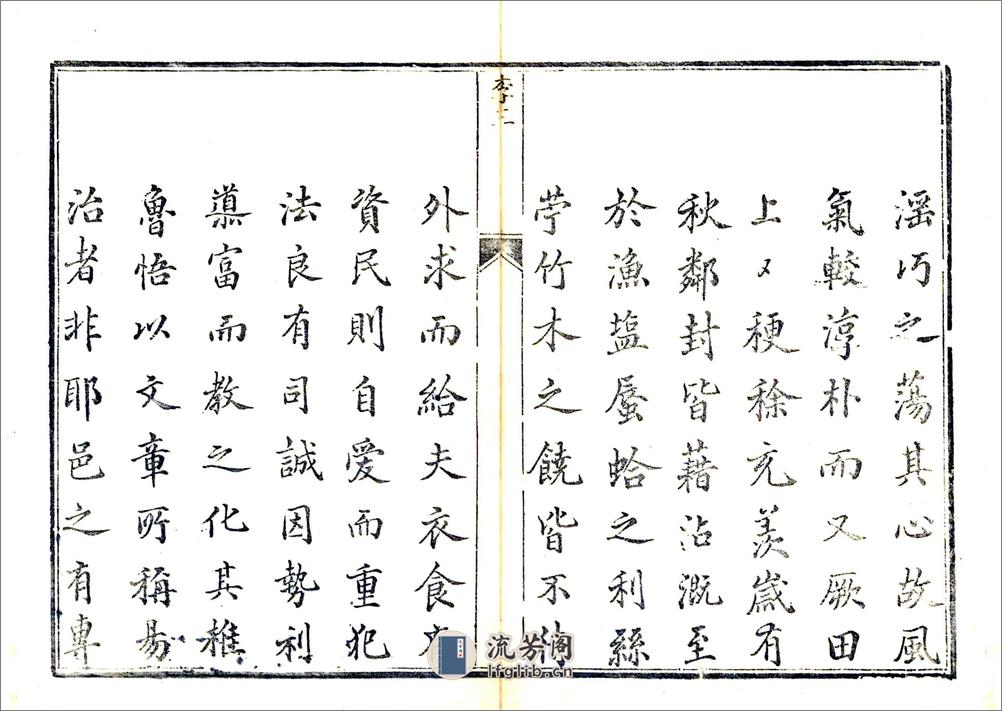 淫巧之蕩其心故風
氣較淳朴而又厥田
上〻稉稌充羨歲有
秋鄰封皆藉沾漑至
於漁塩蜃蛤之利絲
苧竹木之饒皆不待
李三
外求而給夫衣食
資民則自愛而重犯
法良有司誠因勢利
導富而教之化其椎
魯悟以文章所稱易
治者非耶邑之有專
流芳阁
lfglib.cn